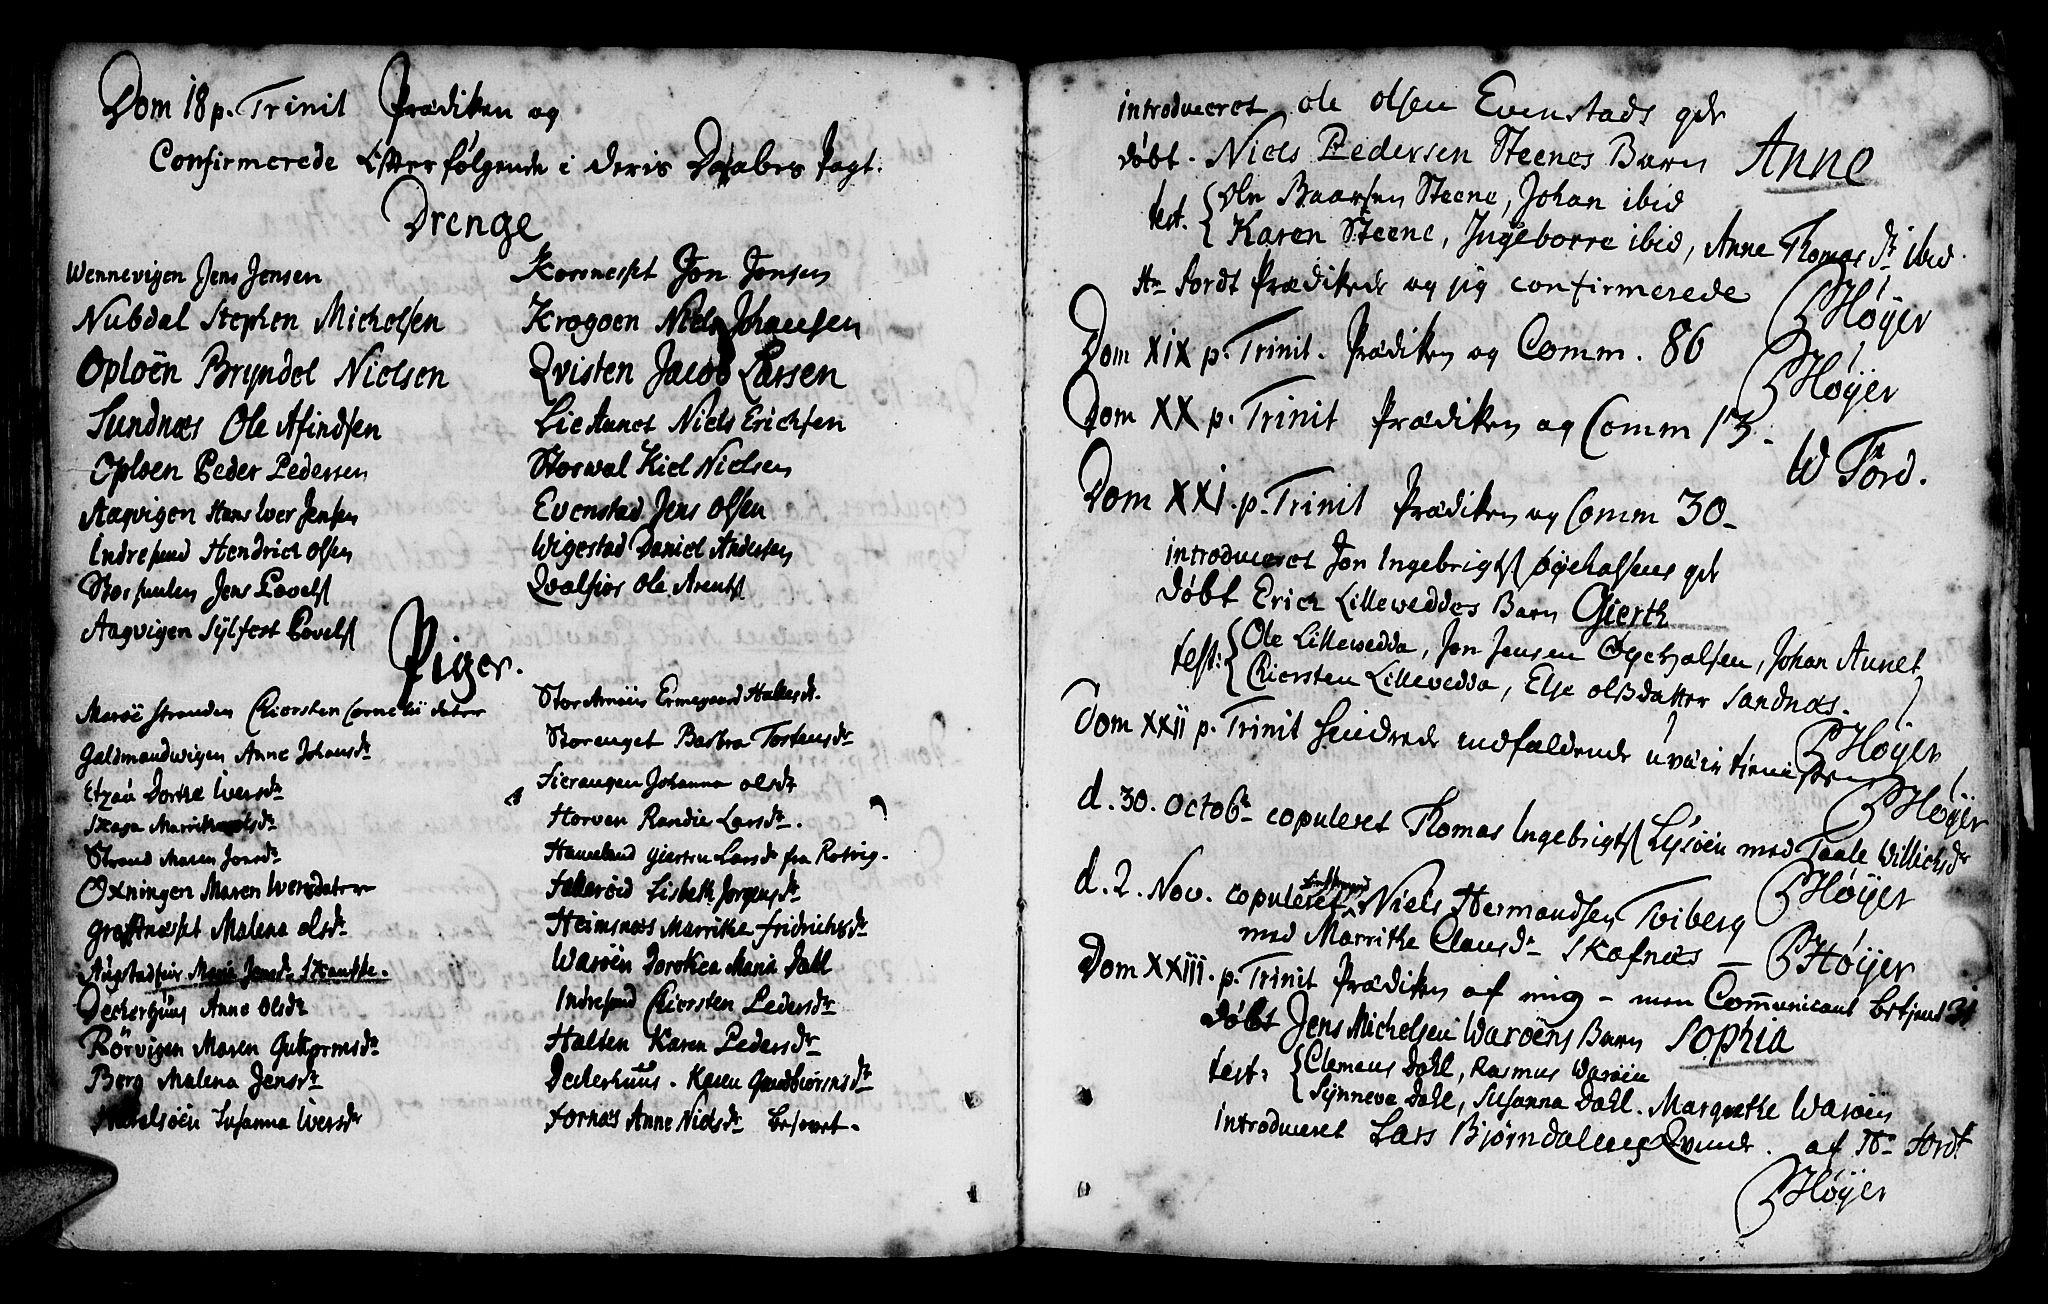 Dom 18 p. Trinit Prædiken og
Confirmerede Efterfølgende i deris Daabes Pagt:
Drenge
Wennevigen Jens Jensen
Nubdal Stephen Michelsen
Oploën Bryndel Nielsen
Sundnæs Ole Afindsen
Oploen Peder Pedersen
Aagvigen Hans Iver Jensen
Indresund Hendrich Olsen
Jens Povels
Aagvigen Sÿlfest Povels
Jon Jonsen
Krogøen Niels Johansen
Qvisten Jacob Larsen
Lie Aunet Niels Erichsen
Storwal Kiel Nielsen
Evenstad Jens Olsen
Wigestad Daniel Andersen
Qvalfior Ole Arents
Piger.
Marøe Stranden Chiersten Cornelii dater
Galdmandwigen Anne Johansdr
Dorthe Iversdr
Skaga
Strand Maren Jonsdr
Oxningen Maren Iversdater
Malena Olsdr
Marie Jensdr Skanke.
Deckerhuus Anne Olsdr
Rörvigen Maren Guttormsdr
Berg Malena Jensdr
Susanna Iversdr
Stor Arnöis Ermegaard
Storenget Barbra Torstensdr
Johanna Olsdr
Horven Randie Larsdr.
Haueland Giertru Larsdr fra Rotvig.
Lisbeth Jørgensdr
Heimsnæs Marrithe Fridrichsdr
Waröen Dorothea Maria Dahl
Indresund Chiersten Pedersdr
Halten Karen Pedersdr
Deckerhuus. Karen Gundbiörnsdr
Fornæs Anne Nielsdr besovet.
introduceret Ole Olsen Evenstads qdr
døbt. Niels Pedersen Steenes Barn Anne
test. { Ole Baarsen Steene, Johan ibid
Karen Steene, Ingeborre ibid, Anne Thomasdr ibid.
Hr Tordt Prædikede og jeg confirmerede
Høÿer
Dom XIX p. Trinit. Prædiken og Comm. 86
Høÿer
Dom XX p. Trinit Prædiken og Comm 13.
W Tord.
Dom XXI. p. Trinit Prædiken og Comm 30.
introduceret Jon Ingebrigts Øÿehalsens qdr
døbt Erich Lilleweddes Barn Gierth
test: { Ole Lillewedda, Jon Jensen Øÿehalsen, Johan Aunet
Chiersten Lillevedda, Else Olsdatter Sandnæs.
Høÿer
Dom XXII p. Trinit hindrede indfaldende uvair tienisten
Høÿer
d. 30. Octobr copuleret Thomas Ingebrigts Lÿsöen med Taale Willichsdr
Høÿer
d. 2. Nov. copuleret Niels Hermandsen Tviberg
med Marrithe Clausdr Skafnæs — Høÿer
Dom XXIII. p. Trinit Prædiken af mig – men Communicant betjent 31
døbt Jens Michelsen Waröens Barn Sophia
test: { Clemens Dahl, Rasmus Waröen
Sÿnneva Dahl, Susanna Dahl. Margrethe Waröen
introduceret Lars Bjørndalens Qvinde. af Hr Tordt
Høÿer